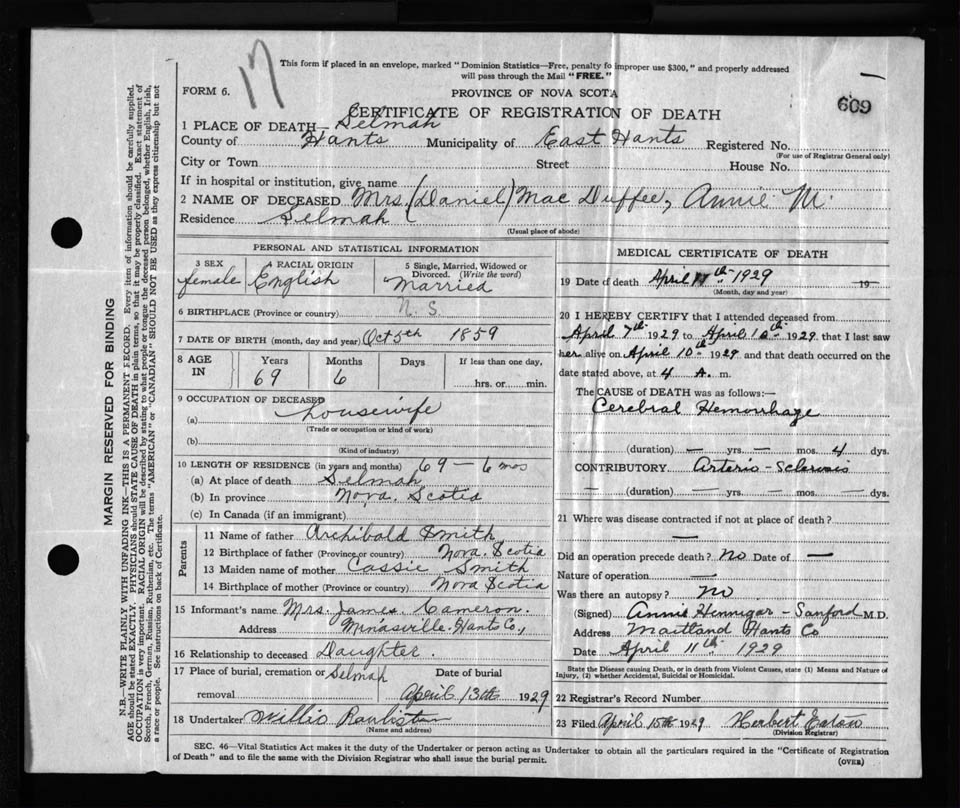 17
This form if placed in an envelope, marked "Dominion Statistics—Free, penalty fo improper use $300," and properly addressed
will pass through the Mail "FREE."
FORM 6.
PROVINCE OF NOVA SCOTIA
609
CERTIFICATE OF REGISTRATION OF DEATH
1 PLACE OF DEATH— Selmah
County of Hants Municipality of East Hants Registered No.
(For use of Registrar General only)
City or Town Street House No.
If in hospital or institution, give name
2 NAME OF DECEASED Mrs. (Daniel) Mac Duffee, Annie M.
Residence Selmah
(Usual place of abode)
PERSONAL AND STATISTICAL INFORMATION
3 SEX 4 RACIAL ORIGIN 5 Single, Married, Widowed or
Divorced. (Write the word)
female English Married
6 BIRTHPLACE (Province or country) N. S.
7 DATE OF BIRTH (month, day and year) Oct 5th 1859
8 AGE IN Years Months Days If less than one day,
69 6 hrs. or min.
9 OCCUPATION OF DECEASED
(a) housewife
(Trade or occupation or kind of work)
(b)
(Kind of industry)
10 LENGTH OF RESIDENCE (in years and months) 69 — 6 mos
(a) At place of death Selmah
(b) In province Nova. Scotia
(c) In Canada (if an immigrant)
Parents
11 Name of father Archibald Smith
12 Birthplace of father (Province or country) Nova. Scotia
13 Maiden name of mother Cassie Smith
14 Birthplace of mother (Province or Country) Nova Scotia
15 Informant's name Mrs. James Cameron.
Address Minasville. Hants Co.,
16 Relationship to deceased Daughter.
17 Place of burial, cremation or Selmah Date of burial
removal April 13th 1929
18 Undertaker Willis
(Name and address)
MEDICAL CERTIFICATE OF DEATH
19 Date of death April 11th 1929 19
(Month, day and year)
20 I HEREBY CERTIFY that I attended deceased from
April 7th 1929 to April 10th 1929, that I last saw
her alive on April 10th 1929, and that death occurred on the
date stated above, at 4 A. m.
The CAUSE OF DEATH was as follows:—
Cerebral Hemorrhage
(duration) — yrs. — mos. 4 dys.
CONTRIBUTORY Arterio-Sclerosis
— (duration) — yrs. — mos. — dys.
21 Where was disease contracted if not at place of death?
—
Did an operation precede death? No Date of —
Nature of operation —
Was there an autopsy? No
(Signed) Annie Hennigar-Sanford M.D.
Address Maitland Hants Co
Date April 11th 1929
State the Disease causing Death, or in death from Violent Causes, state (1) Means and Nature of
Injury, (2) whether Accidental, Suicidal or Homicidal.
22 Registrar's Record Number
23 Filed April 15th 1929 Herbert Eaton
(Division Registrar)
SEC. 46—Vital Statistics Act makes it the duty of the Undertaker or person acting as Undertaker to obtain all the particulars required in the "Certificate of Registration
of Death" and to file the same with the Division Registrar who shall issue the burial permit.
(OVER)
MARGIN RESERVED FOR BINDING
N.B.—WRITE PLAINLY WITH UNFADING INK—THIS IS A PERMANENT RECORD. Every item of information should be carefully supplied.
AGE should be stated EXACTLY. PHYSICIANS should STATE CAUSE OF DEATH in plain terms, so that it may be properly classified. Exact statement of
OCCUPATION is very important. RACIAL ORIGIN will be described by stating to what people or tongue the deceased person belonged, whether English, Irish,
Scotch, French, German, Russian, Ruthenian, etc. The terms "AMERICAN" or "CANADIAN" SHOULD NOT BE USED as they express citizenship but not
a race or people. See instructions on back of Certificate.